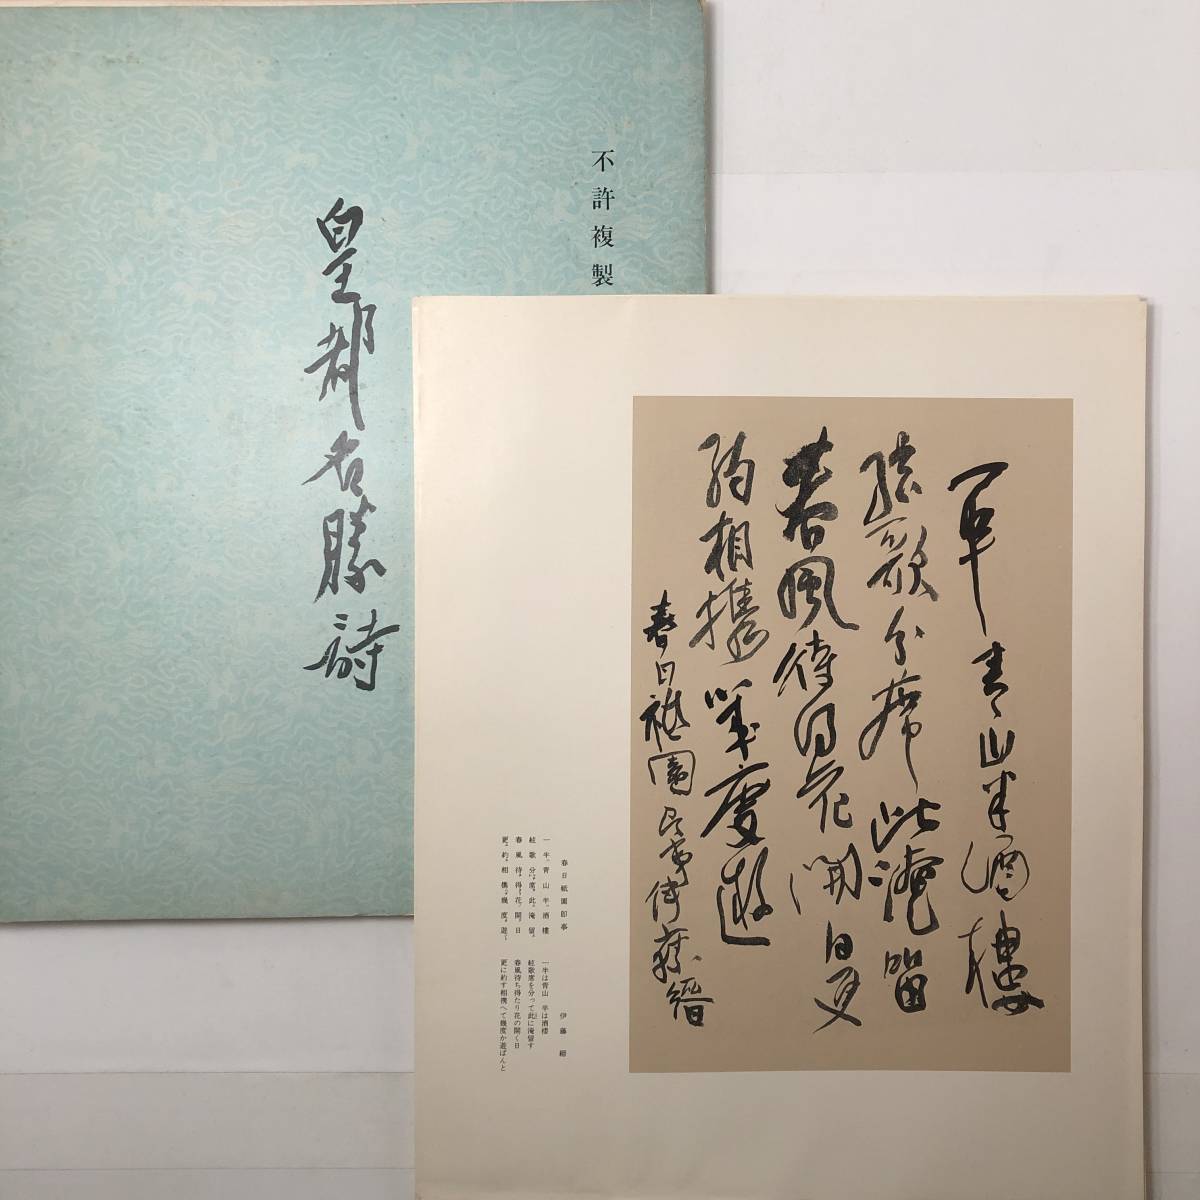 不許複製
皇都名勝詩
一半青山半酒樓
絃歌分席此淹留
春風待得花開日更
約相攜幾度遊
春日祇園即事 伊藤縉
春日祇園即事
伊藤縉
一半青山半酒樓
絃歌分席此淹留
春風待得花開日
更約相攜幾度遊
一半は青山 半は酒樓
絃歌席を分って此に淹留す
春風待ち得たり花の開く日
更に約す相携へて幾度か遊ばんと